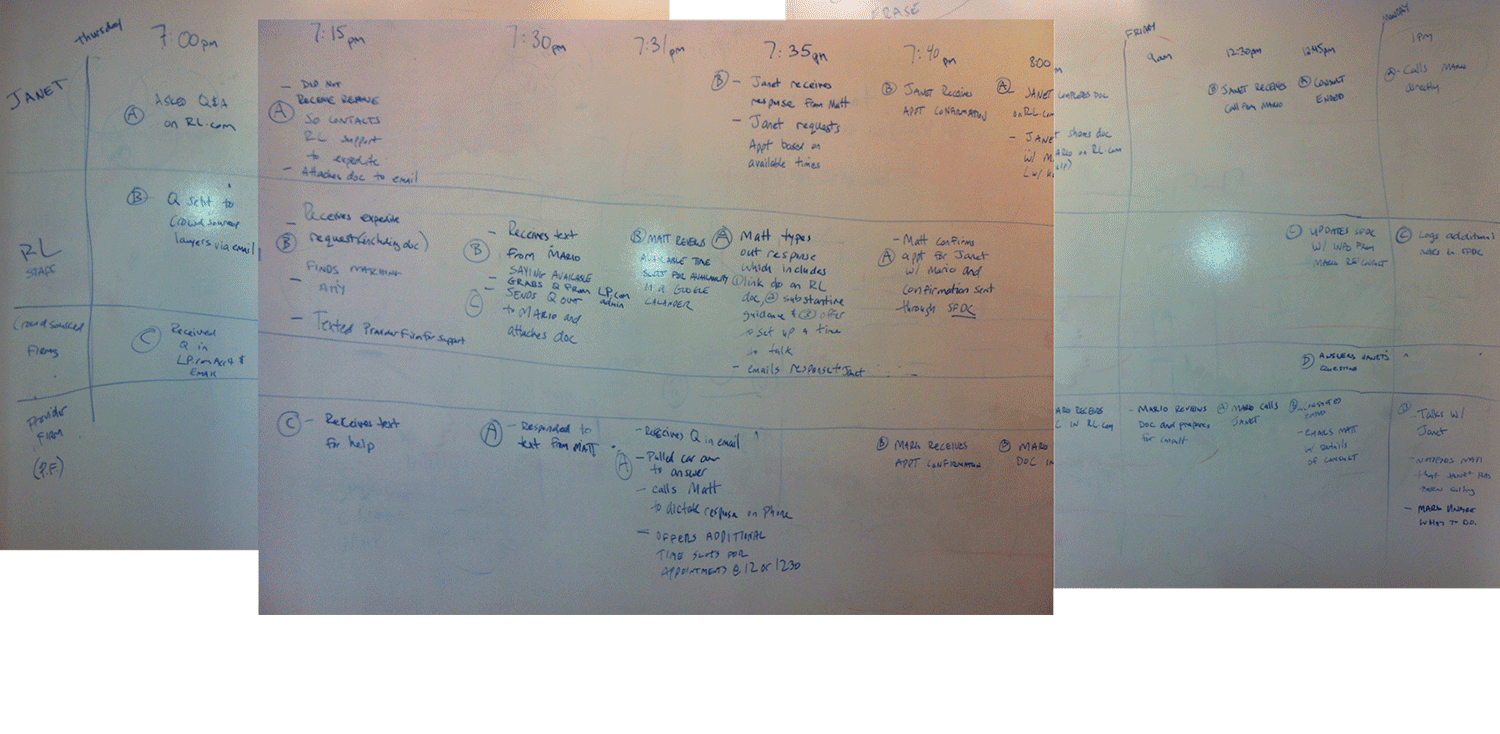 ERASE
Thursday
7:00pm
7:15pm
7:30pm
7:31pm
7:35pm
7:40pm
8:00
FRIDAY
9am
12:30pm
12:45pm
MONDAY
1pm
JANET
A
ASKED Q&A
on RL.com
- DID NOT
A RECEIVE RESPONSE
SO CONTACTS
RL SUPPORT
to expedite
- Attaches doc to email
B - Janet receives
response from Matt
- Janet requests
Appt based on
available times
B JANET RECEIVES
APPT CONFIRMATION
A - JANET COMPLETES DOC
on RL.com
- JANET shares doc
w/ MARIO on RL.com
B JANET RECEIVES
CALL FROM MARIO
A CONSULT
ENDED
A - Calls MARIO
directly
RL
STAFF
B - Q sent to
crowd sourced
lawyers via email
- Receives expedite
B request (including doc)
- FINDS MATCHING
ATTY
- Texted Provider Firm for support
- Receives text
B from MARIO
SAYING AVAILABLE
- GRABS Q FROM LP.com
admin
C SENDS Q OUT
to MARIO and
attaches doc
B MATT REVIEWS
AVAILABLE TIME
SLOTS FOR AVAILABILITY
IN A GOOGLE
CALANDER
A Matt types
out response
which includes
① link do on RL
doc, ② substantive
guidance & ③ offer
to set up a time
to talk
- emails response to Janet
- Matt confirms
A appt for Janet
w/ Mario and
confirmation sent
through SFDC
C UPDATES SFDC
W/ INFO FROM
MARIO RE CONSULT
C Logs additional
notes in SFDC
Crowdsourced
Firms
C Received
Q in
LP.com Acct &
EMAIL
D ANSWERS JANET'S
QUESTION
Provider
Firm
(P.F.)
C - Receives text
for help
A - Responded to
text from MATT
- Receives Q in email
A - Pulled car over
to answer
- calls Matt
to dictate response on Phone
- OFFERS ADDITIONAL
TIME SLOTS FOR
APPOINTMENTS @ 12 OR 1230
B MARIO RECEIVES
APPT CONFIRMATION
B MARIO RECEIVES
DOC IN RL.com
- MARIO REVIEWS
DOC and prepares
for consult
A MARIO CALLS
JANET
- EMAILS MATT
w/ details
OF CONSULT
- Talks w/
Janet
- NOTIFIES MATT
that JANET HAS
been calling
- MARIO UNSURE
WHAT TO DO.